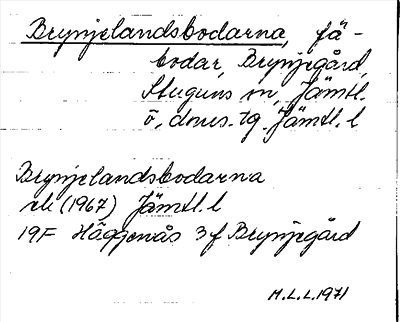 Brynjelandsbodarna, fä-
bodar, Brynjegård,
Stuguns sn, Jämtl.
ö. dms. tg. Jämtl. l
Brynjelandsbodarna
rek (1967) Jämtl. l
19F Häggenås 3f Brynjegård
M.L.L. 1971